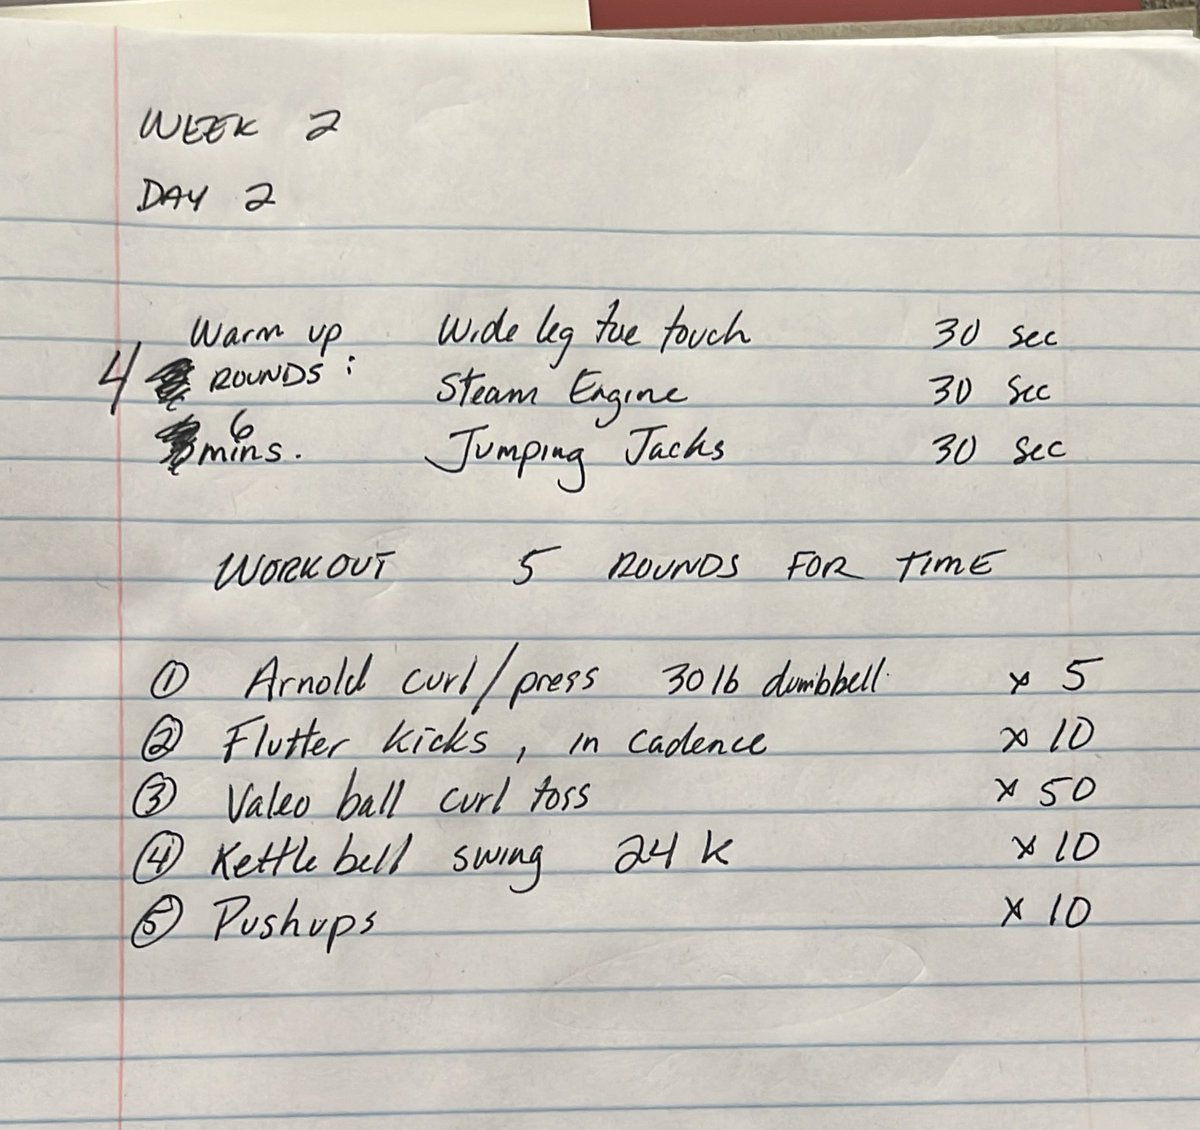 WEEK 2
DAY 2
Warm up Wide leg toe touch 30 sec
4 ROUNDS: Steam Engine 30 Sec
6 mins. Jumping Jacks 30 Sec
WORKOUT 5 ROUNDS FOR TIME
① Arnold curl/press 30 lb dumbbell x 5
② Flutter kicks, in cadence x 10
③ Valeo ball curl toss x 50
④ Kettle bell swing 24 k x 10
⑤ Pushups x 10